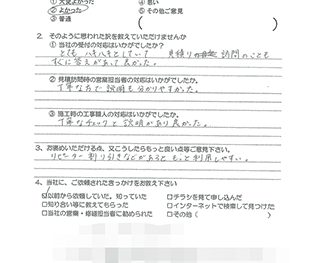 ①大変よかった ④悪い
②よかった ⑤その他ご意見
③普通 ( )
2. そのように思われた訳を教えていただけませんか
①当社の受付の対応はいかがでしたか？
とても ハキハキとしていて 見積りや 訪問のことも
すぐに答えがあって良かった。
②見積訪問時の営業担当者の対応はいかがでしたか。
丁寧な方で説明も分かりやすかった。
③施工時の工事職人の対応はいかがでしたか？
丁寧なチェックと説明があり良かった。
3、お褒めいただける点、又こうしたらもっと良い点等ご意見下さい。
リピーター割り引きなどがあると もっと利用しやすい。
4、当社に、ご依頼されたきっかけをお教え下さい
以前から依頼していた。知っていた □チラシを見て申し込んだ
□知り合い等に教えてもらった □インターネットで検索して見つけた
□当社の営業・修繕担当者に勧められた □その他(